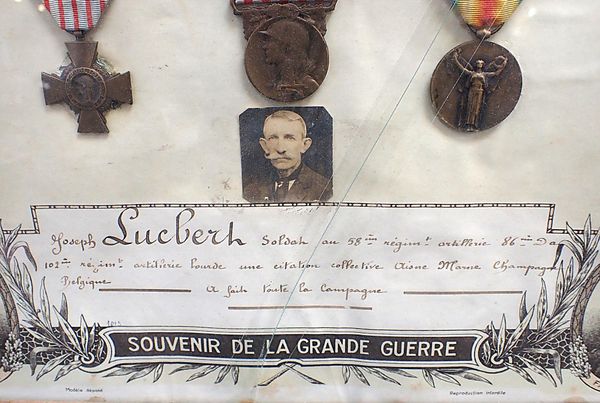 Joseph Lucbert Soldat au 58ème régimt artillerie 86ème Da
102me régimt artillerie lourde une citation collective Aisne Marne Champagne
Belgique A fait toute la campagne
SOUVENIR DE LA GRANDE GUERRE
Modèle déposé
Reproduction interdite